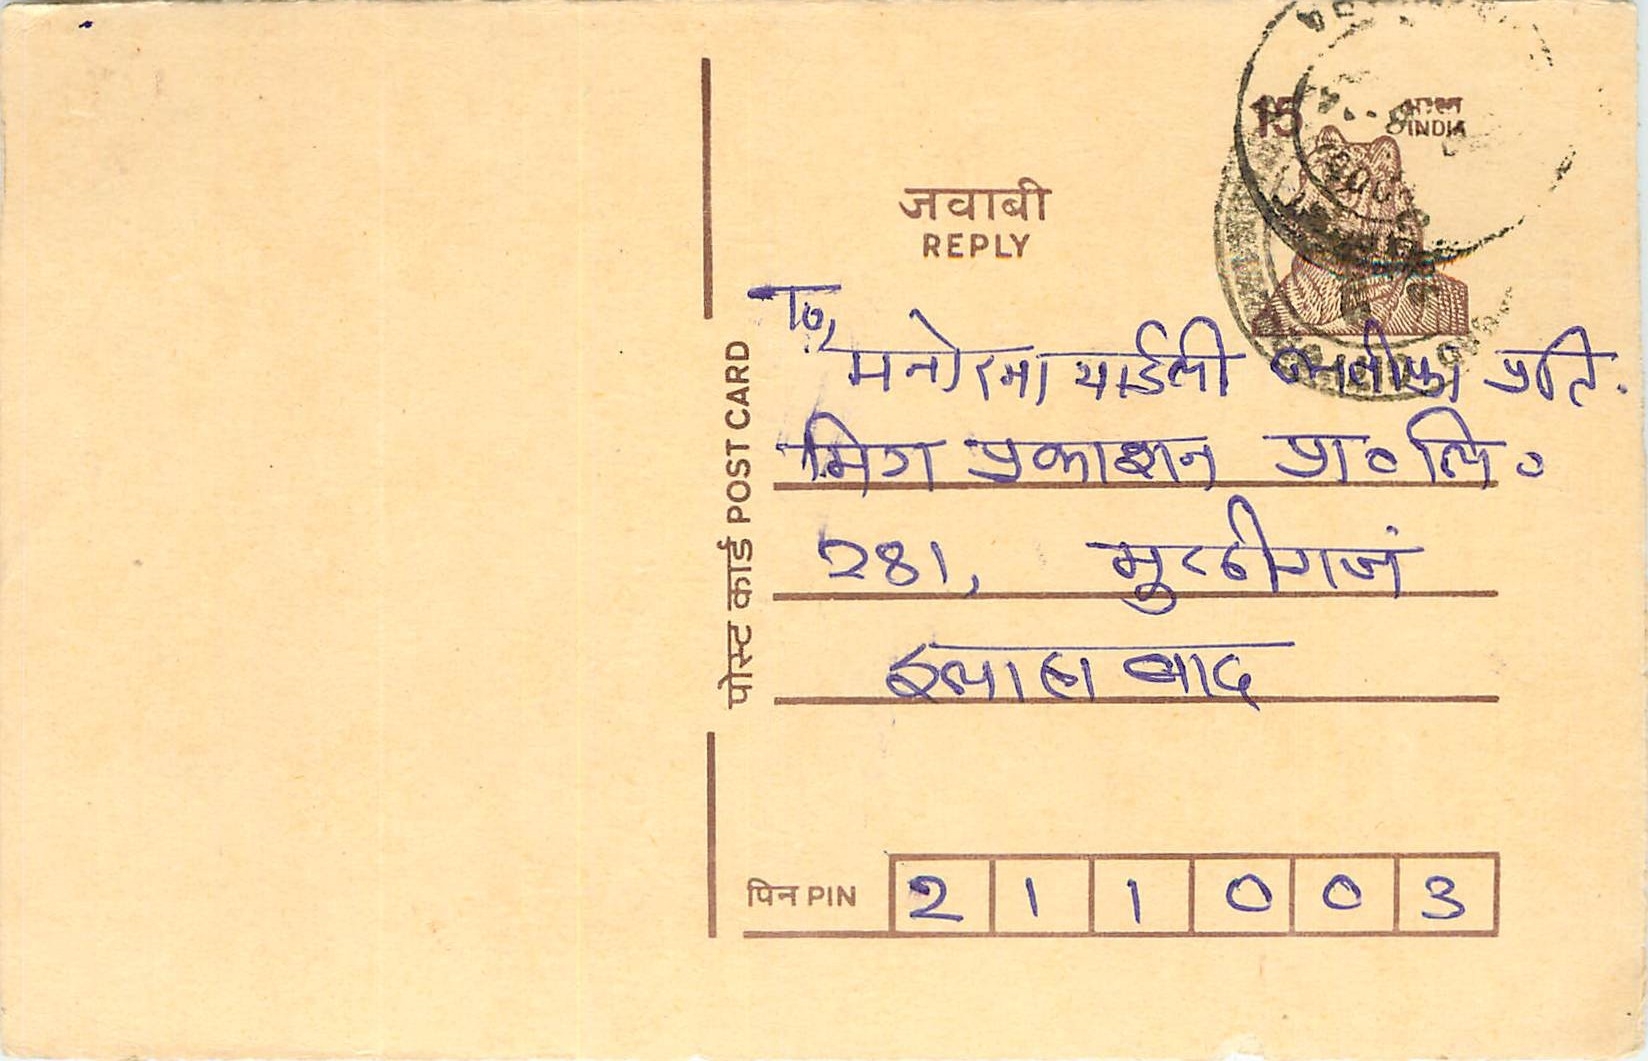 15
भारत
INDIA
जवाबी
REPLY
To,
मनोरमा थाईली प्रति.
मित्र प्रकाशन प्रा० लि०
281, मुठ्ठीगजं
इलाहाबाद
पोस्ट कार्ड POST CARD
पिन PIN 2 1 1 0 0 3